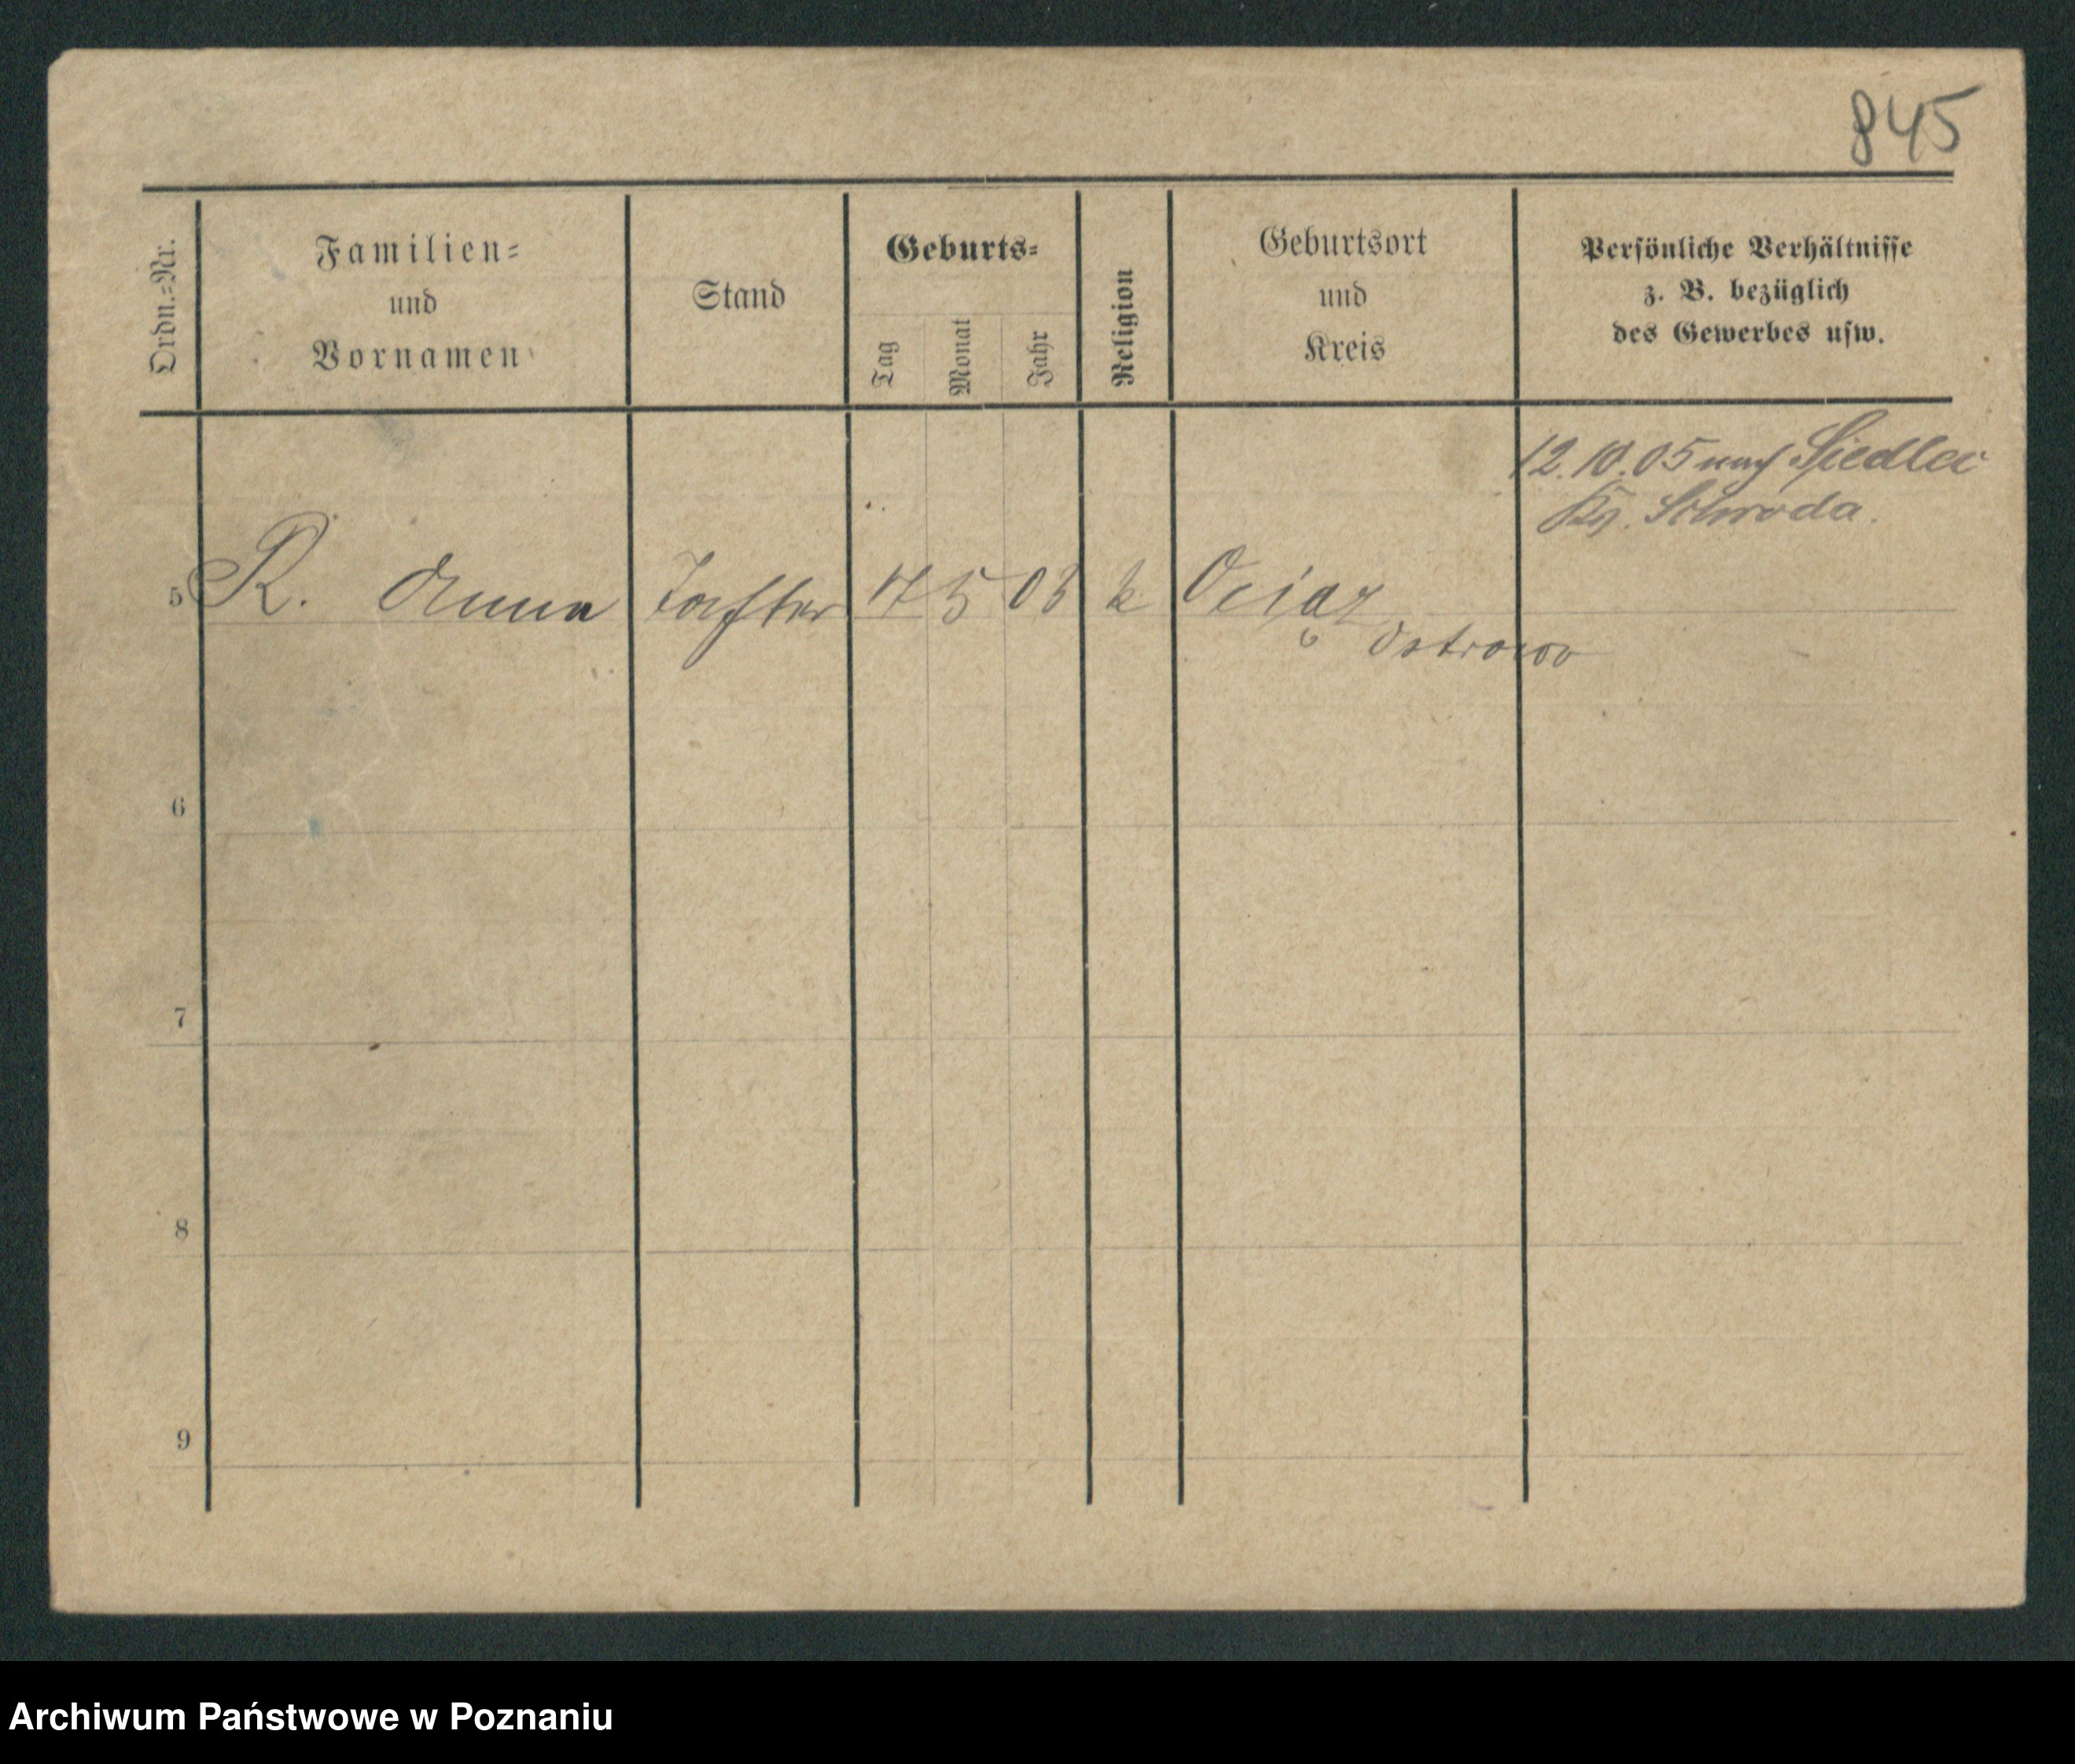 845
Ordn.=Nr.
Familien=
und
Vornamen
Stand
Geburts=
Tag
Monat
Jahr
Religion
Geburtsort
und
Kreis
Persönliche Verhältnisse
z. B. bezüglich
des Gewerbes usw.
12.10.05 nach Siedlec
Schroda.
5 R. Anna Tochter 17 5 03 k Ociąz
Ostrowo
6
7
8
9
Archiwum Państwowe w Poznaniu